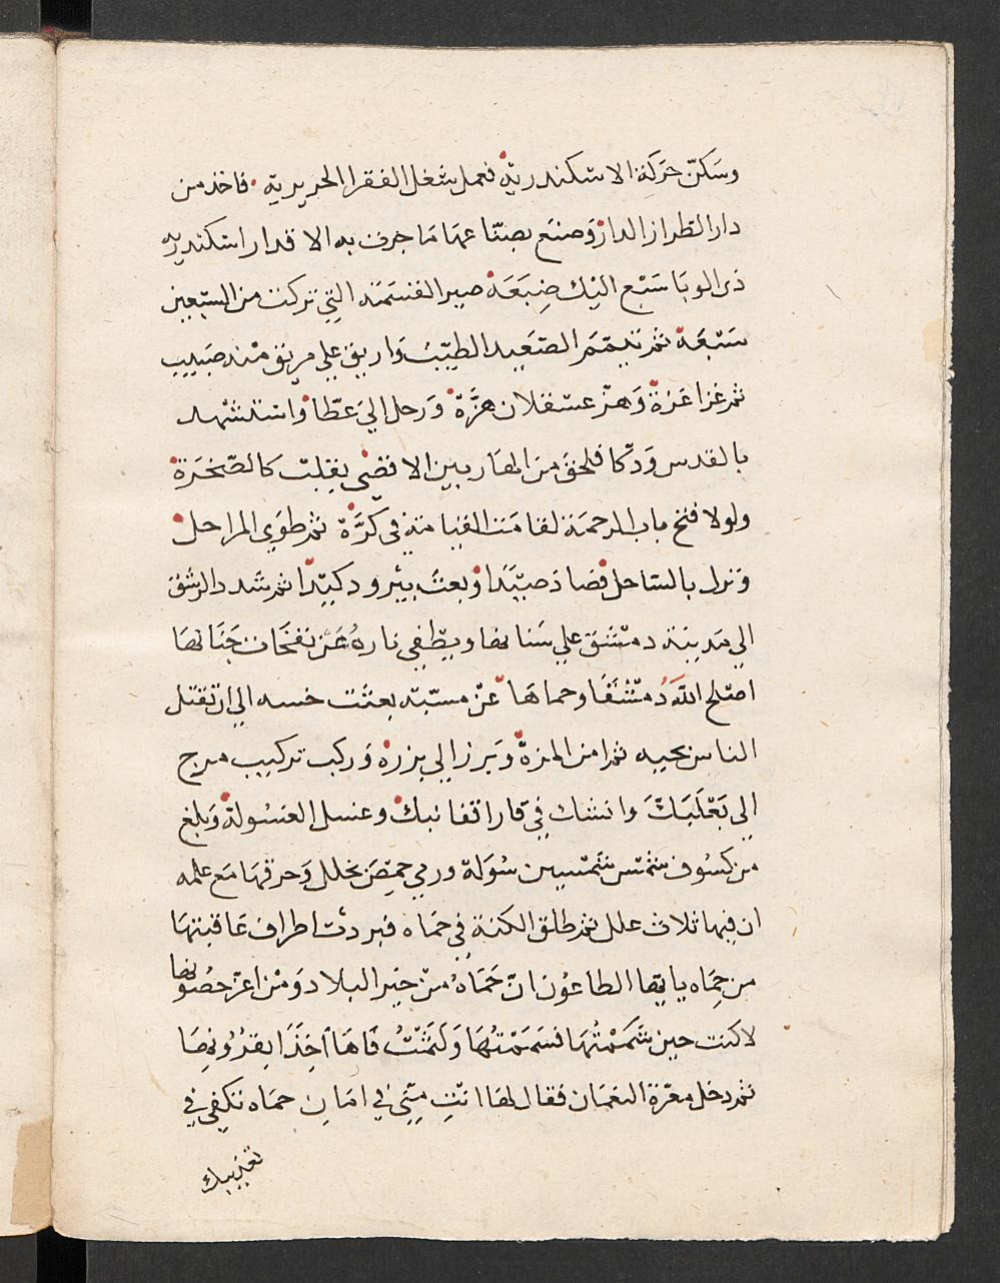 وسَكنّ حَرَكَة الاسكندرية فعمل شغل الفقرا الحريرية فاخذ من
دار الطراز الداز وَصنع بصنّاعها مَا جرت به الاقدار اسكندريه
ذى الوبا سَبْع اليك ضبعَه صبر القسمته التي تركت من السّبعين
سَبْعَة ثمر تيمّمَ الصّعَيد الطيّب وَابرق علي برقة منه صَيب
ثمر غزا غَزة وَهزّ عسقلان هزَّة وَرحل الي عَطّا واستشهد
بالقدس وَزكا فلحق من الهاربين الاقصَي بقلب كالصّخرَة
ولولا فتح باب الرحمَة لقامَت القيامَة في كَرَّة ثمر طوَي المراحل
وَنزل بالسّاحل فصاد صيّدَا وبعث بيرود كيدّا ثمر شدد الرشق
الي مَدينة دمشق علي سَناها ويطّفي نارهُ عَن نفحَات جَنَاتها
اصلح الله دُمشْقَا وحماهَا عنْ مسَبّه بعثَت خسه الي ان تقتل
الناس بحبه ثمر امن المزة وَبرز الي برزة وَركب تركيب مرج
الي بَعْلَبَكَّ وانشك في قارا قفا نبك وغسل الغسُولة وَبلغ
من كسُوف شمس شمسين سُولَة ورمي حمِصَ بخلل وَحرقهَا مَع علمه
ان فيها ثلاث علل ثمر طلق الكنة في حمَاه فبردتْ اطراف عَاقبتهَا
من حِمَاه يا ايّها الطاعوُن انّ حَمَاهُ منْ خَير البلاد وَمنْ اعزّ حصُونها
لا كنت حين شَمَمْتُهَا فسَمَمْتهَا وَلثَمْتُ فَاهَا آخِذَا بقرُونهَا
ثمر دخل معرّة النعمَان فقال لها انتِ مِنِّي في امَانِ حمَاه تكفي في
تعذيبك